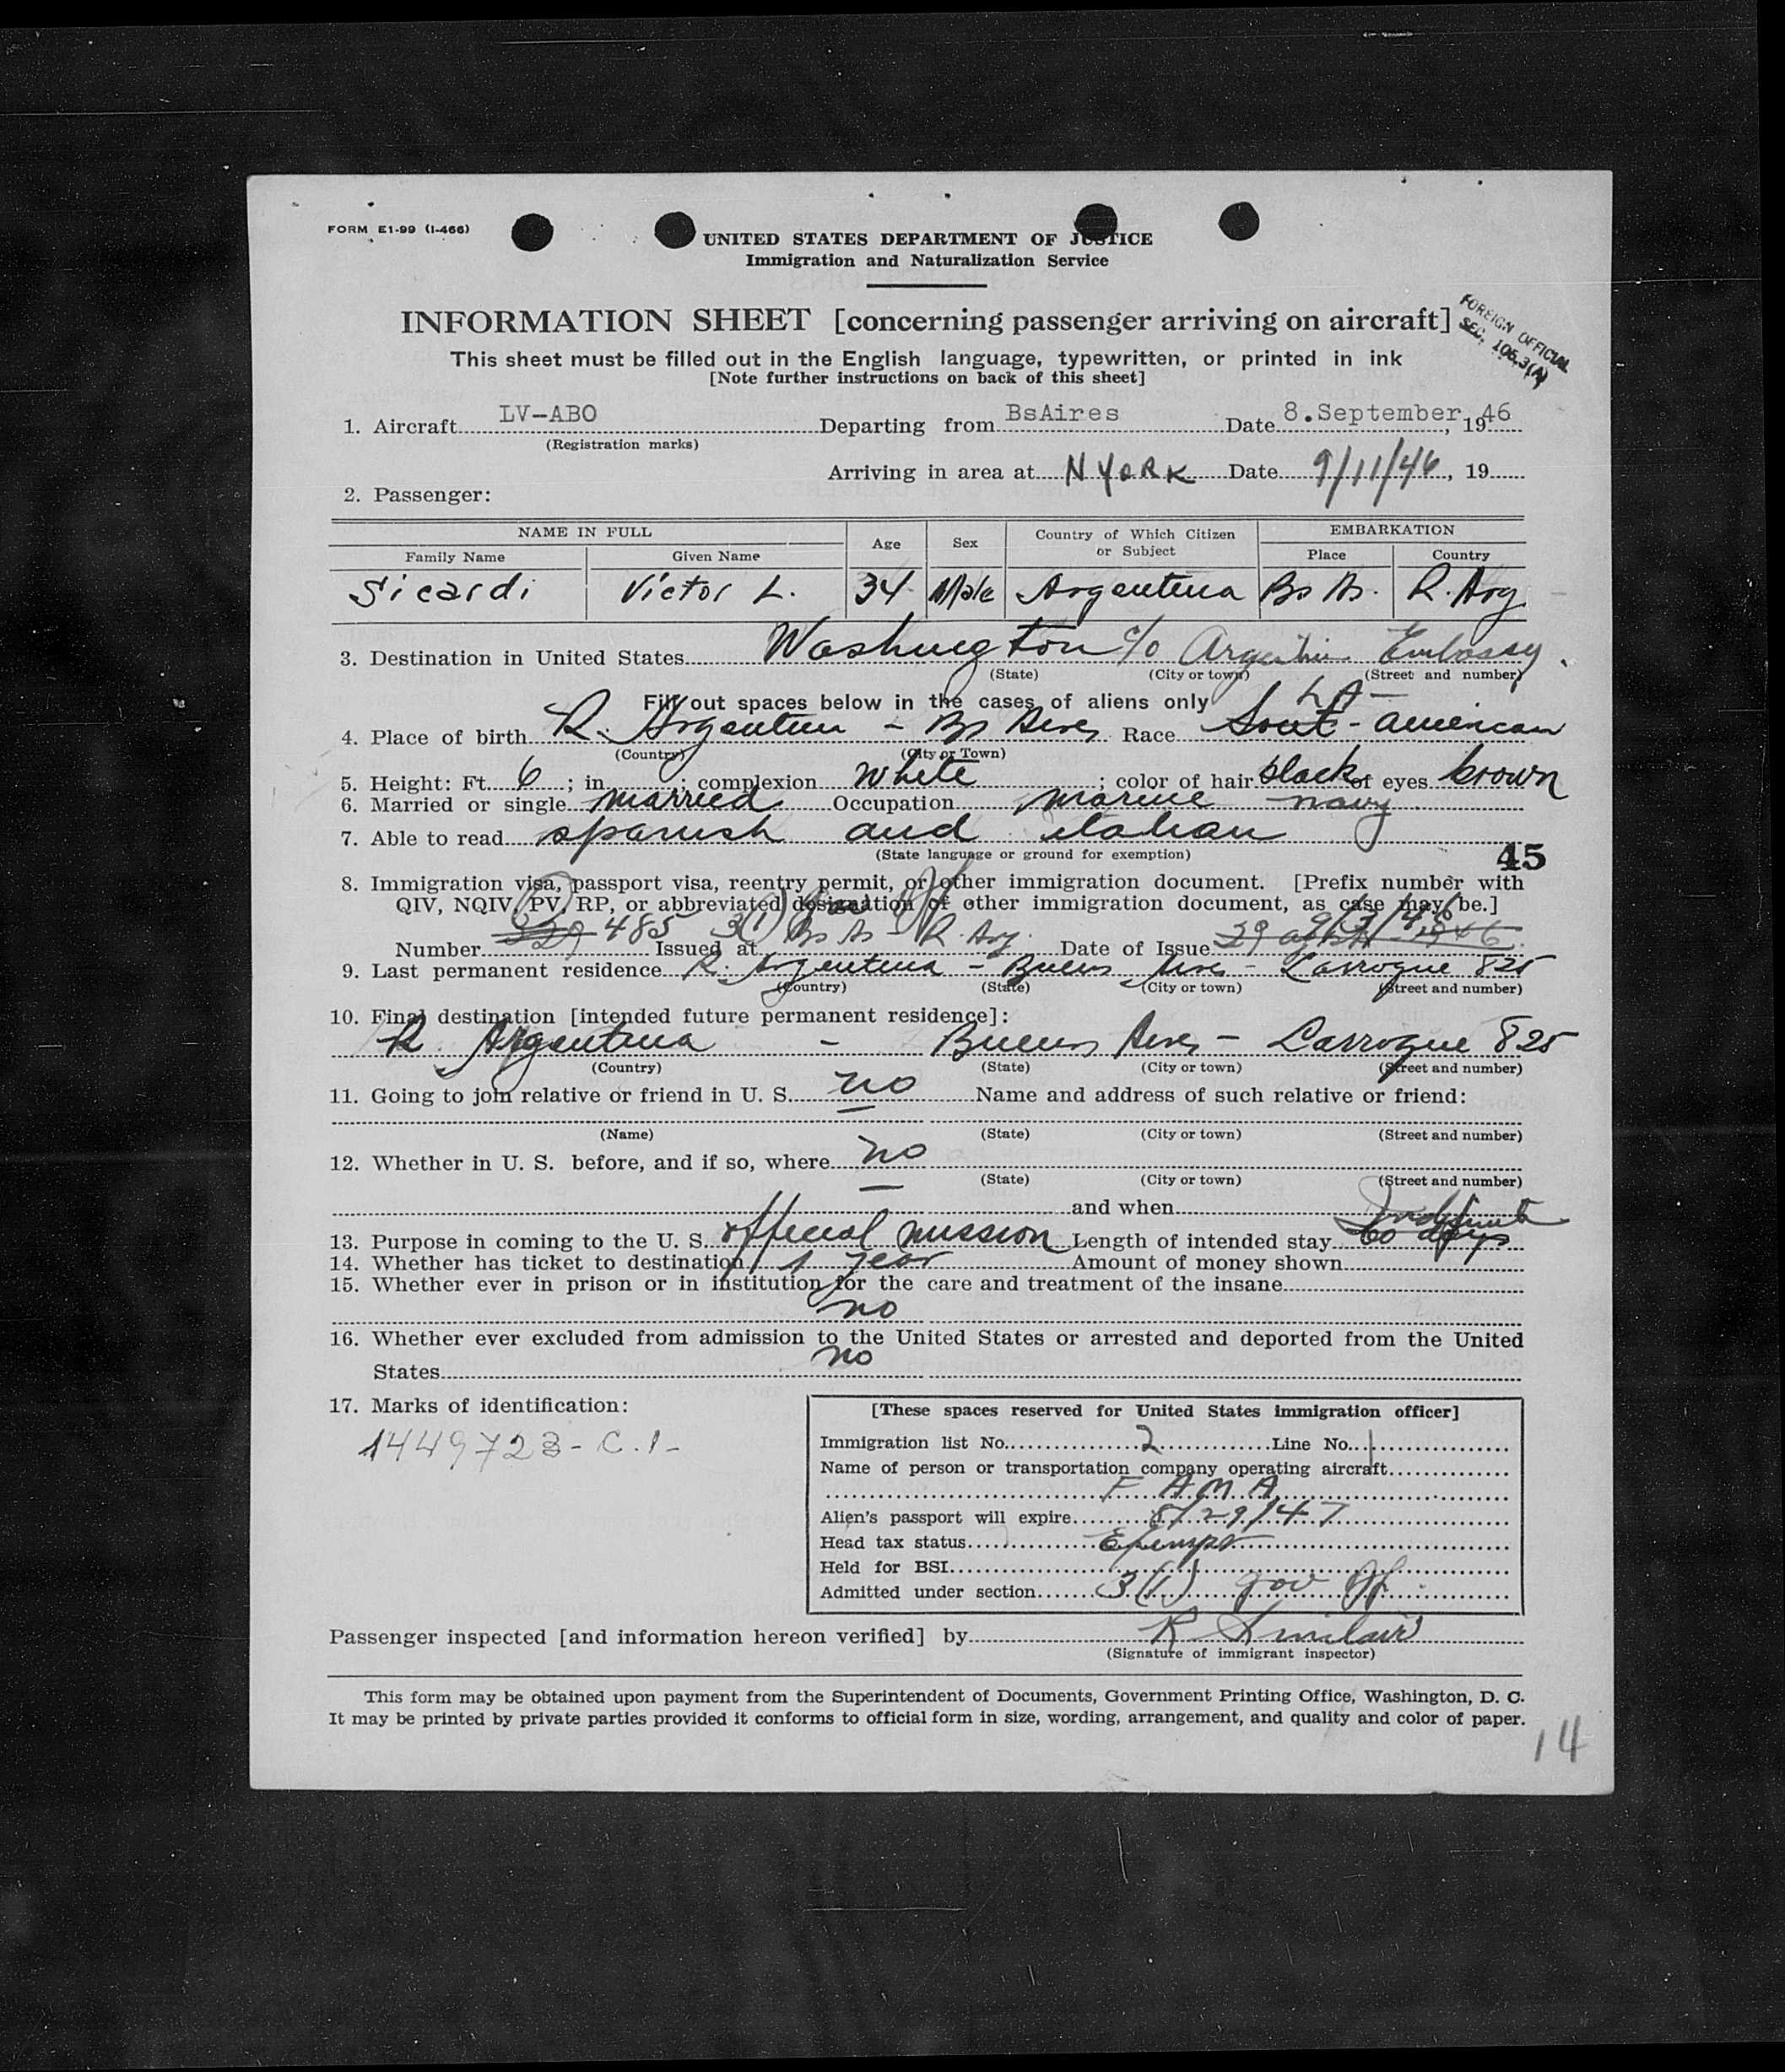 FORM E1-99 (I-466)
UNITED STATES DEPARTMENT OF JUSTICE
Immigration and Naturalization Service
INFORMATION SHEET [concerning passenger arriving on aircraft]
FOREIGN OFFICIAL
SEC. 105.3(A)
This sheet must be filled out in the English language, typewritten, or printed in ink
[Note further instructions on back of this sheet]
1. Aircraft LV-ABO Departing from BsAires Date 8.September, 1946
(Registration marks)
Arriving in area at N YORK Date 9/11/46, 19
2. Passenger:
NAME IN FULL Age Sex Country of Which Citizen or Subject EMBARKATION
Family Name Given Name Place Country
Sicardi Victor L. 34 Male Argentina Bs As. R. Arg.
3. Destination in United States Washington c/o Argentine Embassy
(State) (City or town) (Street and number)
Fill out spaces below in the cases of aliens only
4. Place of birth R. Argentina - Bs Aires Race Sout - american LA -
(Country) (City or Town)
5. Height: Ft. 6; in. ; complexion white; color of hair black of eyes brown
6. Married or single married Occupation marine navy
7. Able to read spanish and italian
(State language or ground for exemption)
45
8. Immigration visa, passport visa, reentry permit, or other immigration document. [Prefix number with
QIV, NQIV, PV, RP, or abbreviated designation of other immigration document, as case may be.]
3(1) 9/3/46
Number 485 Issued at Bs As - R. Arg. Date of Issue
9. Last permanent residence R. Argentina - Buenos Aires - Larroque 825
(Country) (State) (City or town) (Street and number)
10. Final destination [intended future permanent residence]:
R. Argentina - Buenos Aires - Larroque 825
(Country) (State) (City or town) (Street and number)
11. Going to join relative or friend in U. S. no Name and address of such relative or friend:
(Name) (State) (City or town) (Street and number)
12. Whether in U. S. before, and if so, where no
(State) (City or town) (Street and number)
and when
Indefinite
13. Purpose in coming to the U. S. official mission Length of intended stay 60 days
14. Whether has ticket to destination 1 year Amount of money shown
15. Whether ever in prison or in institution for the care and treatment of the insane
no
16. Whether ever excluded from admission to the United States or arrested and deported from the United
States no
17. Marks of identification:
1449723 - C.I-
[These spaces reserved for United States immigration officer]
Immigration list No. 2 Line No. 1
Name of person or transportation company operating aircraft
F A M A
Alien's passport will expire 8/29/47
Head tax status Exempt
Held for BSI
Admitted under section 3(1) gov Of
Passenger inspected [and information hereon verified] by R Sinclair
(Signature of immigrant inspector)
This form may be obtained upon payment from the Superintendent of Documents, Government Printing Office, Washington, D. C.
It may be printed by private parties provided it conforms to official form in size, wording, arrangement, and quality and color of paper.
14